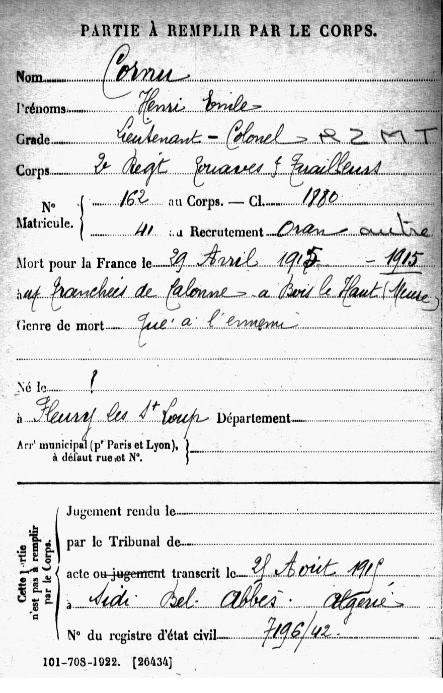 PARTIE À REMPLIR PAR LE CORPS.
Nom Cornu
Prénoms Henri Emile
Grade Lieutenant - Colonel R Z M T
Corps 2e Regt Zouaves & Tirailleurs
N° Matricule. { 162 au Corps. — Cl. 1880
41 au Recrutement Oran autre
Mort pour la France le 29 Avril 1915 - 1915
à aux Tranchées de Calonne - à Bois le Haut (Meuse)
Genre de mort Tué à l'ennemi
Né le ?
à Fleury les St Loup Département
Arr' municipal (pr Paris et Lyon), à défaut rue et N°. }
Cette partie n'est pas à remplir par le Corps. {
Jugement rendu le
par le Tribunal de
acte ou jugement transcrit le Août 1915
à Sidi Bel Abbès Algérie
N° du registre d'état civil 7196/42.
101-708-1922. [26434]